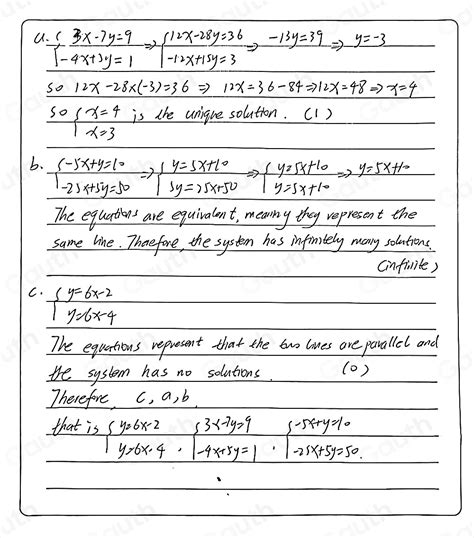 a. { 3x-7y=9 ⇒ { 12x-28y=36 ⇒ -13y=39 ⇒ y=-3
-4x+5y=1 -12x+15y=3
so 12x-28x(-3)=36 ⇒ 12x=36-84 ⇒ 12x=48 ⇒ x=4
so { x=4 is the unique solution. (1)
x=3
b. { -5x+y=10 ⇒ { y=5x+10 ⇒ { y=5x+10 ⇒ y=5x+10
-25x+5y=50 5y=25x+50 y=5x+10
The equations are equivalent, meaning they represent the
same line. Therefore, the system has infinitely many solutions.
(infinite)
c. { y=6x-2
y=6x-4
The equations represent that the two lines are parallel and
the system has no solutions. (0)
Therefore, c, a, b.
that is { y=6x-2 { 3x-7y=9 { -5x+y=10
y=6x-4 . -4x+5y=1 . -25x+5y=50.
Gauth